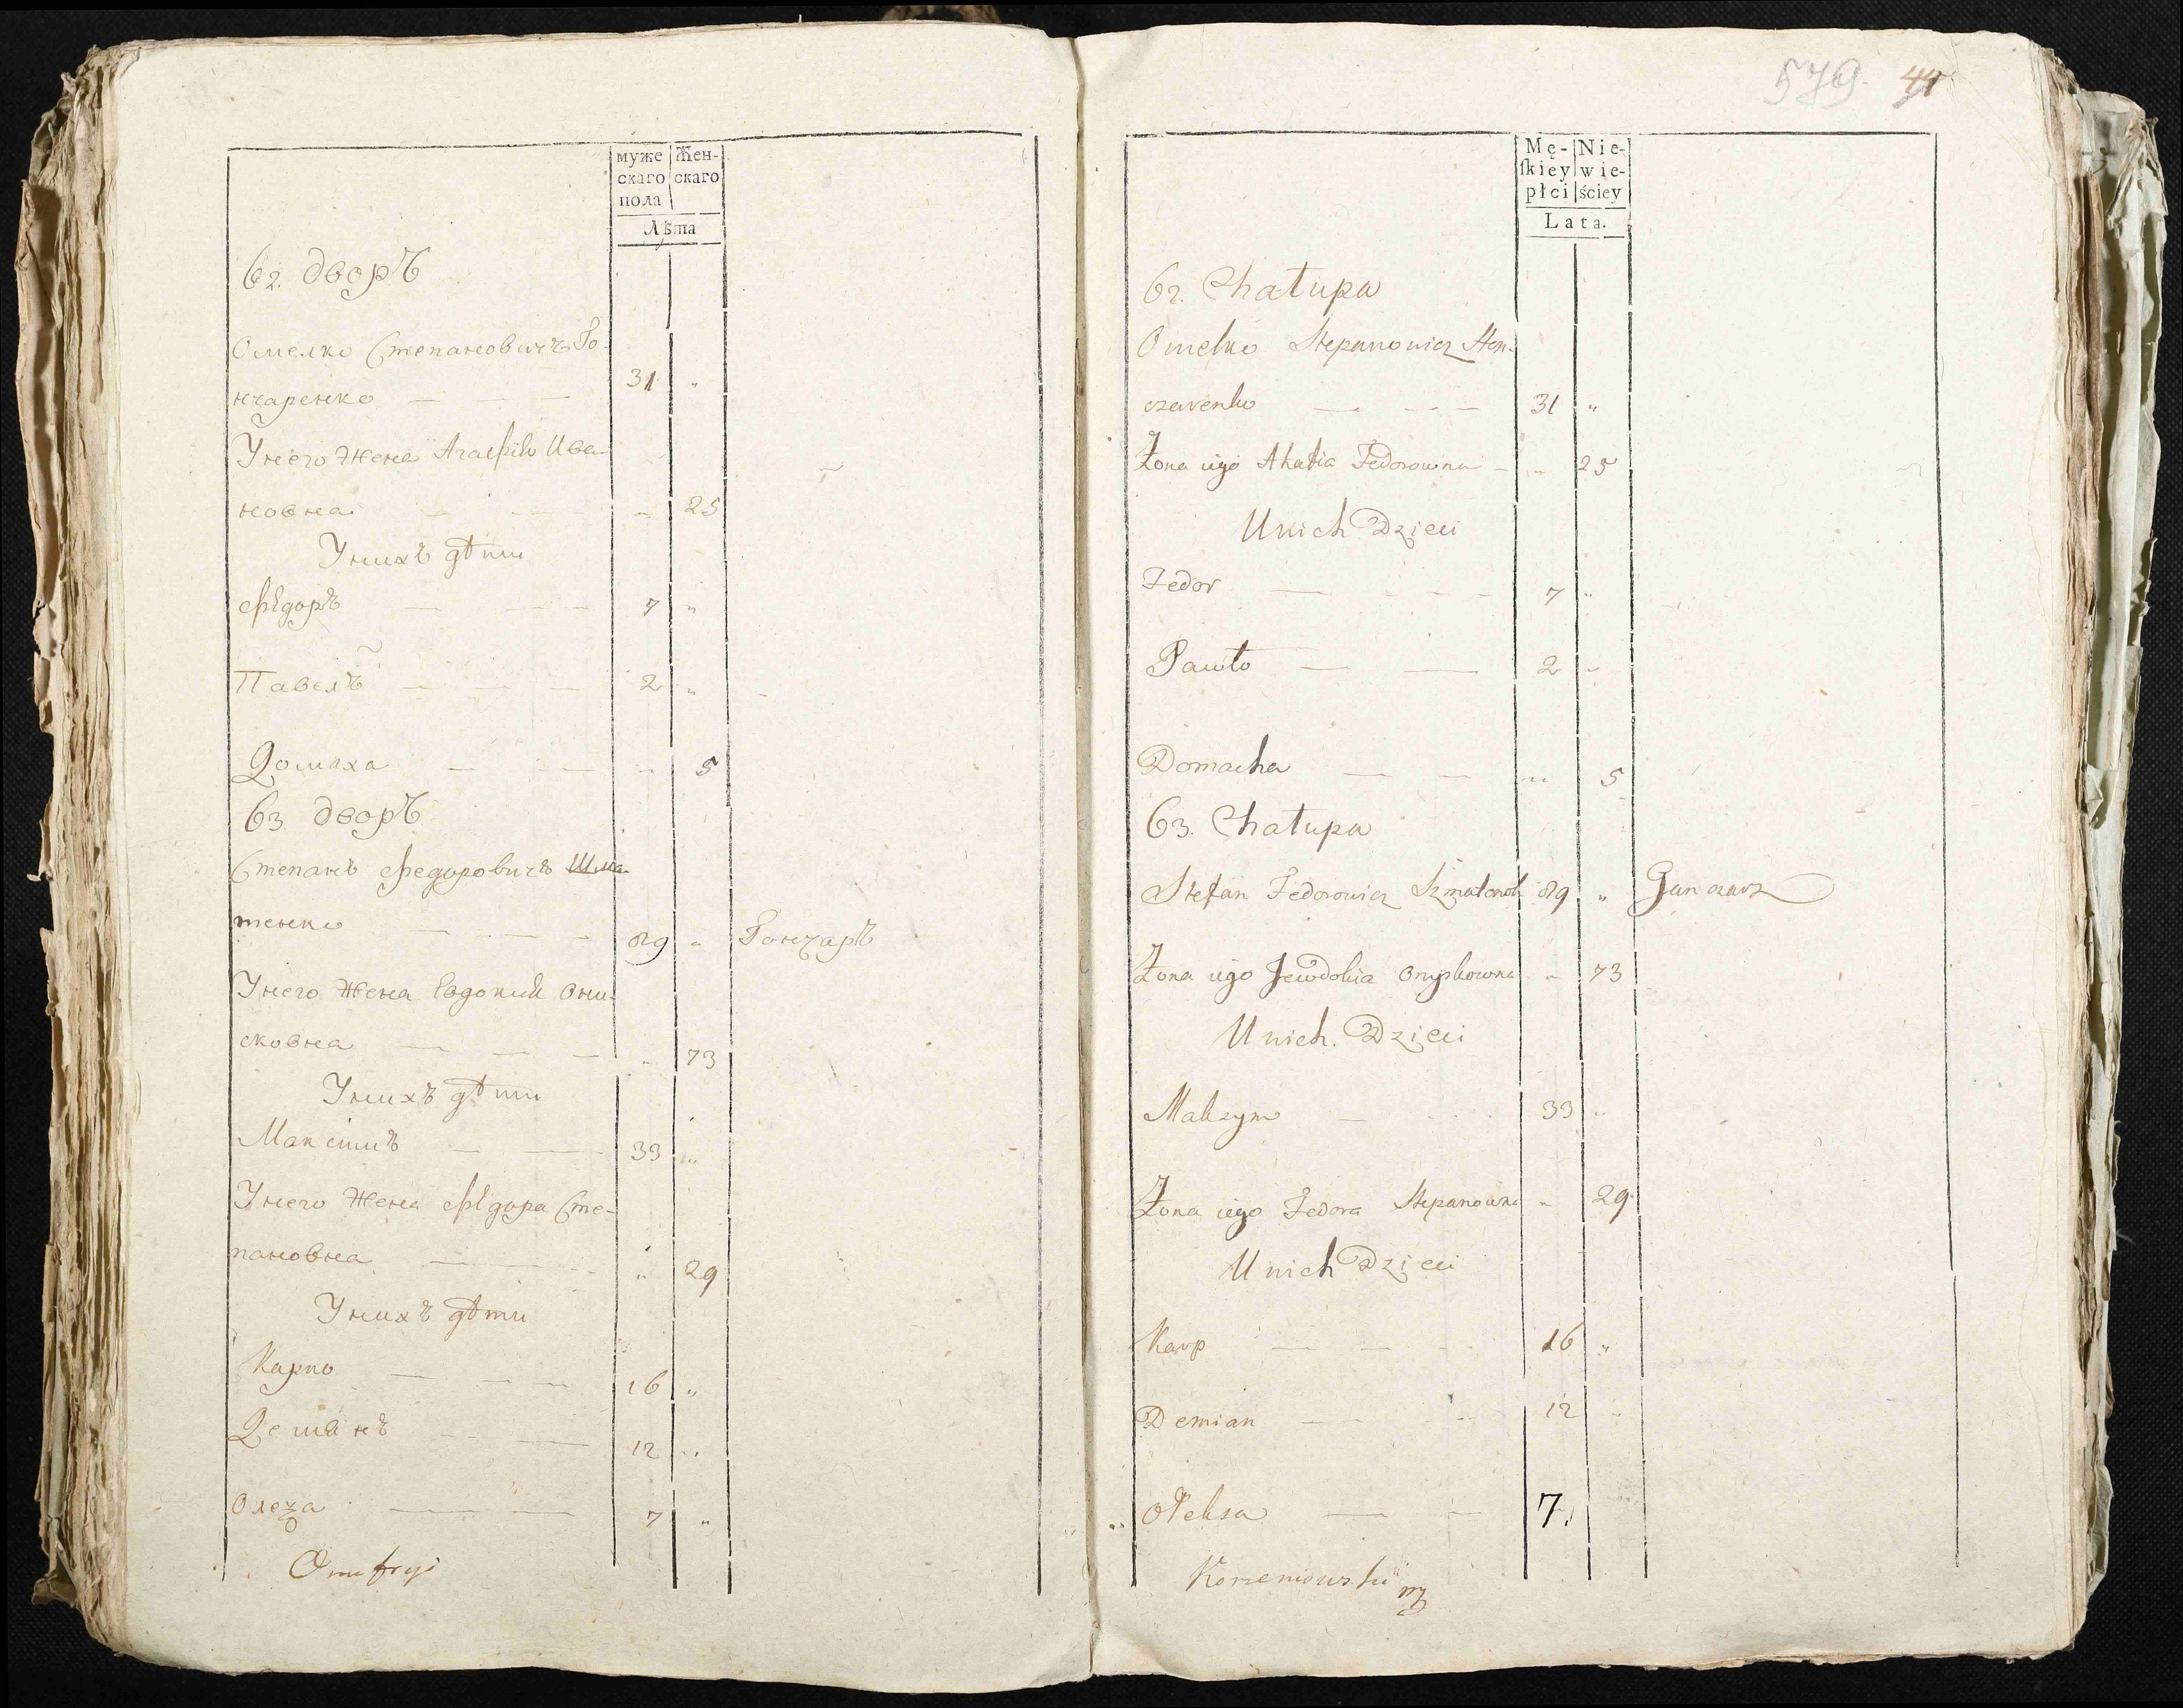 муже Жен-
скаго скаго
пола
Лѣта
62. дворъ
Омелко Степановичъ Го-
нчаренко — — — 31 "
Унего жена Агафiя Ива-
новна — — " 25
Унихъ дѣти
Ѳедоръ — — 7 "
Павелъ — — — 2 "
Домаха — — " 5
63. дворъ
Степанъ Федоровичъ Шма-
тенко — — — 89 " Гончаръ
Унего жена Евдокия Они-
сковна — — — " 73
Унихъ дѣти
Максимъ — — 33 "
Унего жена Федора Сте-
пановна — — " 29
Унихъ дѣти
Карпо — — — 16 "
Демянъ — — 12 "
Олеѯа — — 7 "
Onufryi
579. 41
Mę- Nie-
ſkiey wie-
płci ściey
Lata.
62. Chałupa
Omelko Stepanowicz Hon-
czarenko — — — 31 "
Żona iego Ahafia Fedorowna — " 25
Unich Dzieci
Fedor — — — 7 "
Pawło — — 2 "
Domacha — — " 5
63. Chałupa
Stefan Fedorowicz Szmatenok 89 " Gancarz
Żona iego Jewdokia Onyskowna " 73
Unich Dzieci
Maksym — — 33 "
Żona iego Fedora Stepanowna " 29
Unich Dzieci
Karp — — — 16 "
Demian — — 12 "
Ołeksa — — 7 "
Korzeniowski mp